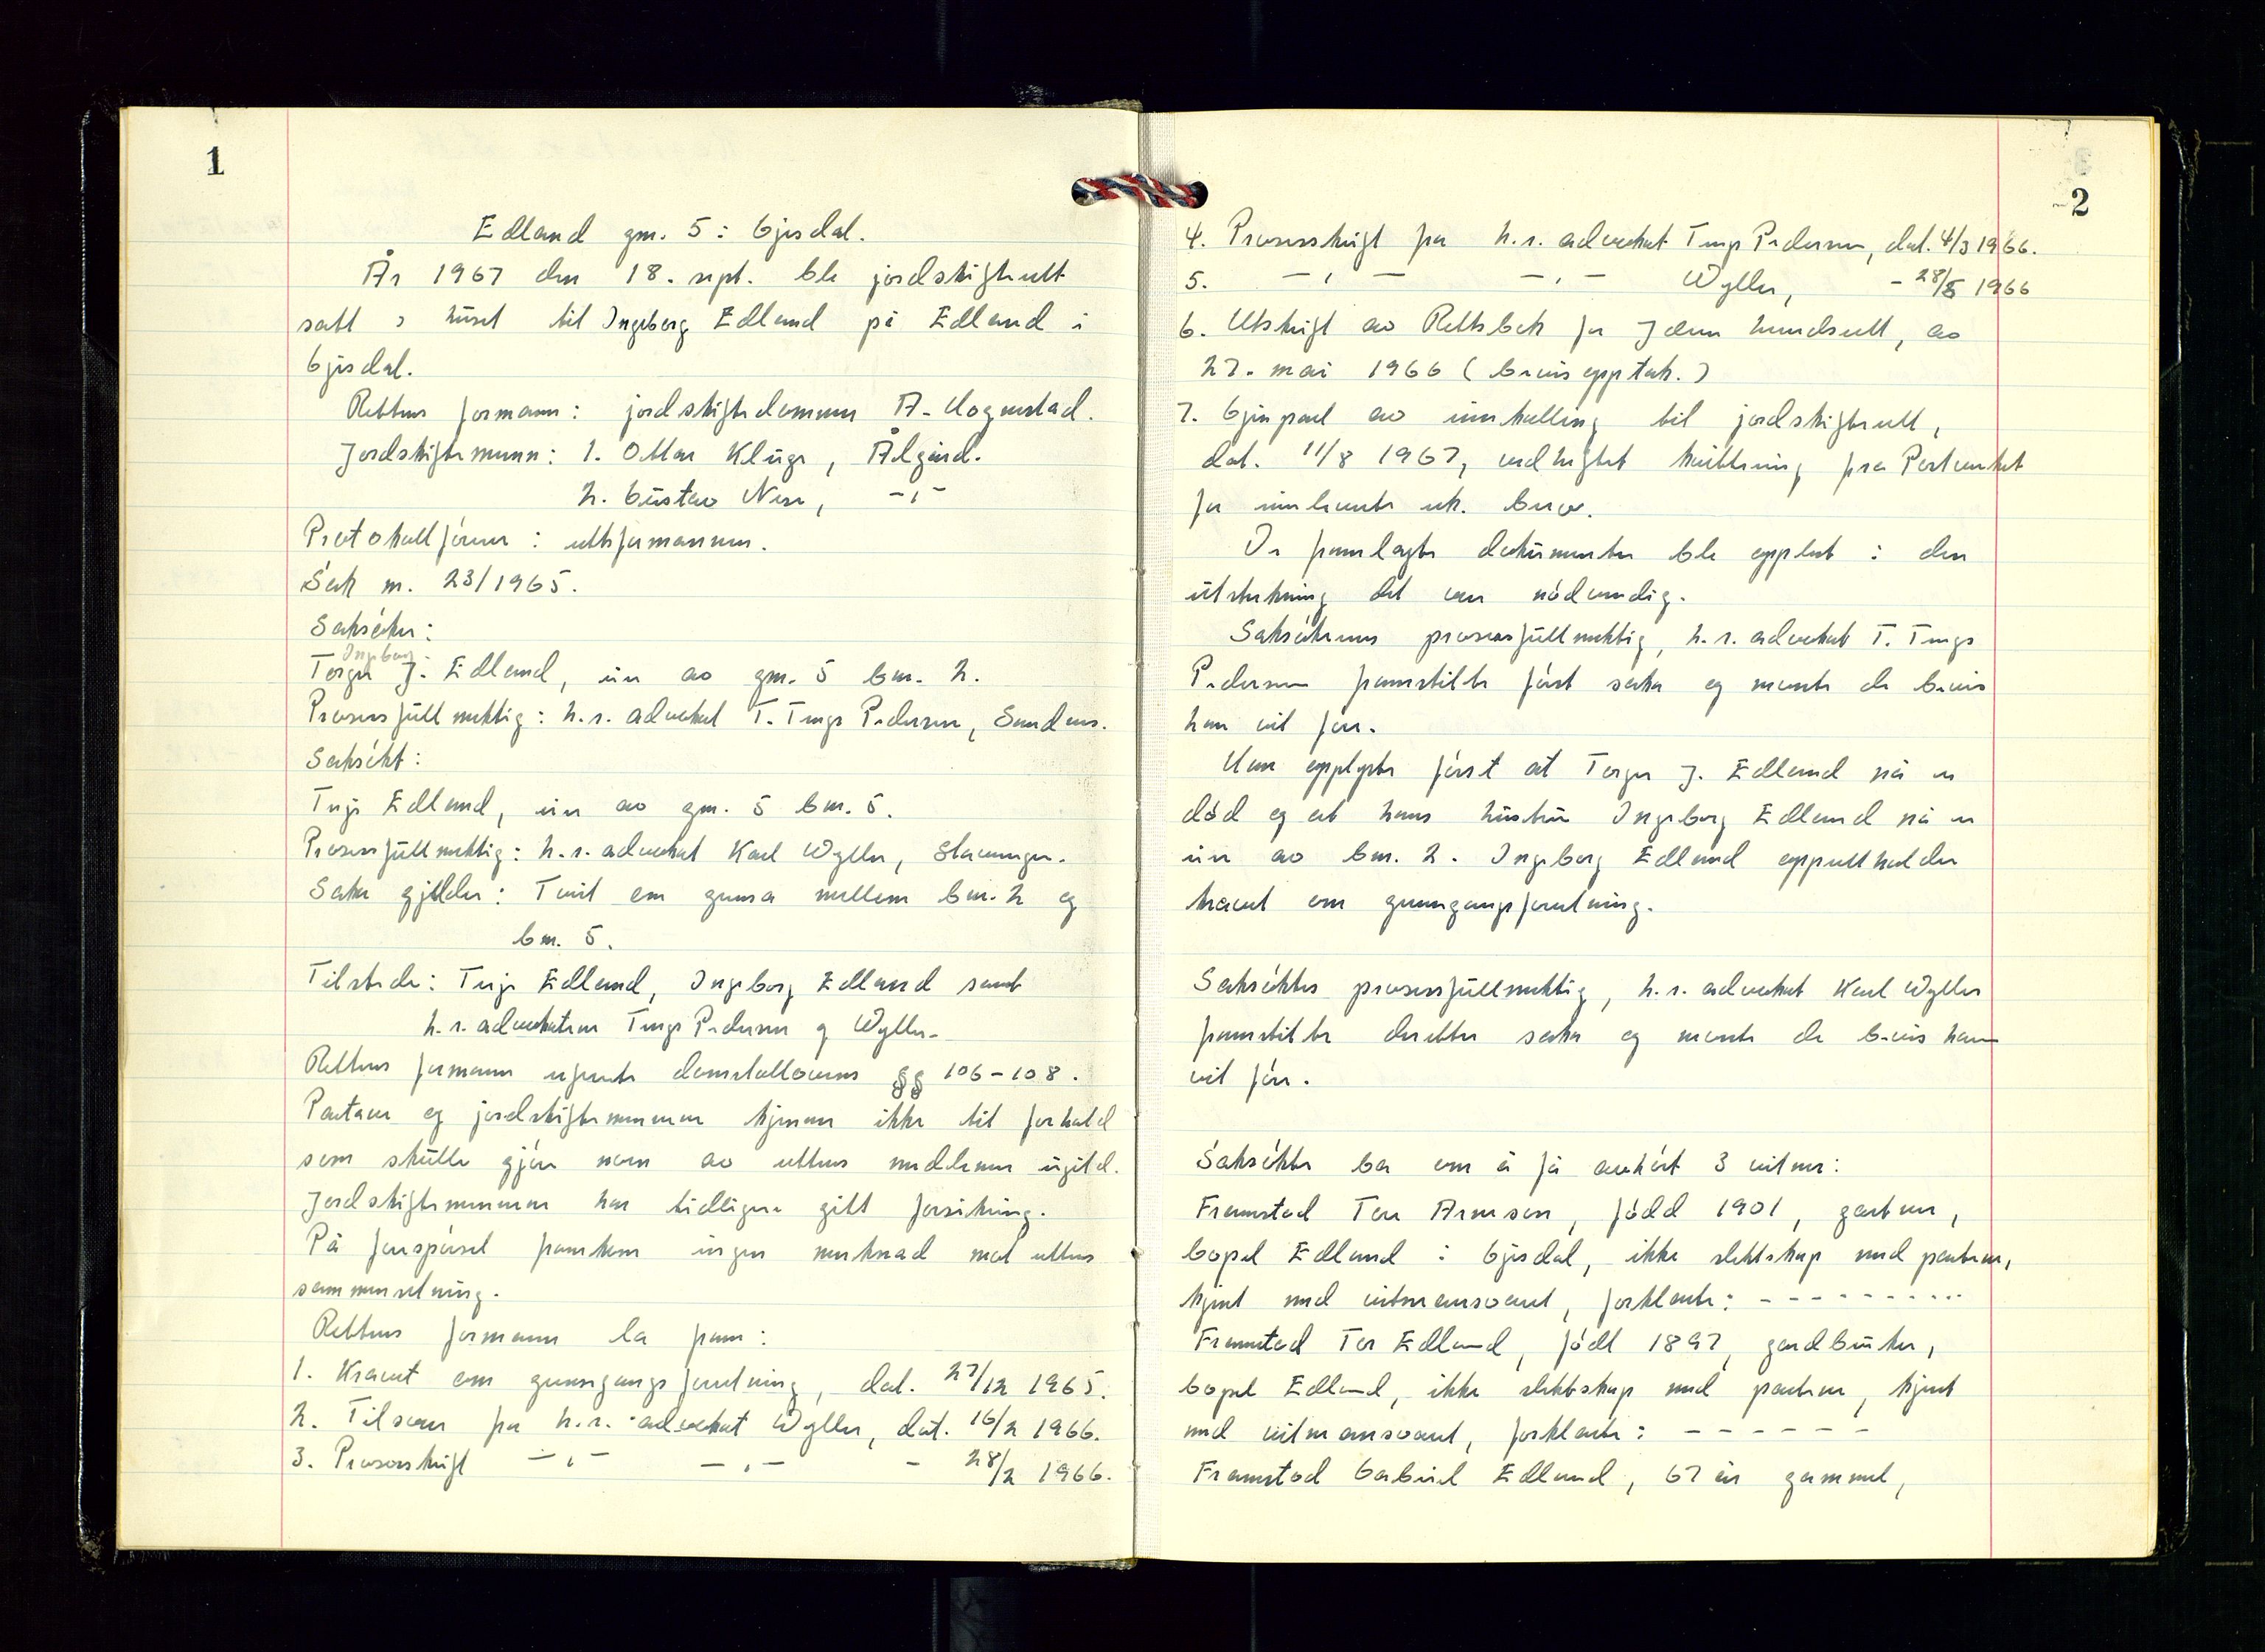 1
Edland gnr. 5 i Gjesdal.
År 1967 den 18. sept. ble jordskifterett
satt i huset til Ingeborg Edland på Edland i
Gjesdal.
Rettens formann: jordskiftedommer A. Hognestad.
Jordskiftemenn: 1. Ottar Kluge, Ålgård.
2. Gustav Nese, -"-
Protokollfører: rettsformannen.
Sak nr. 23/1965.
Saksøker:
Ingeborg
Torger J. Edland, eier av gnr. 5 bnr. 2.
Prosessfullmektig: h.r.advokat T. Tengs Pedersen, Sandnes.
Saksøkt:
Terje Edland, eier av gnr. 5 bnr. 5.
Prosessfullmektig: h.r.advokat Karl Wyller, Stavanger.
Saka gjelder: Tvist om grensa mellom bnr. 2 og
bnr. 5.
Tilstede: Terje Edland, Ingeborg Edland samt
h.r.advokatene Tengs Pedersen og Wyller.
Rettens formann refererte domstollovens §§ 106-108.
Partene og jordskiftemennene kjenner ikke til forhold
som skulle gjøre noen av rettens medlemmer ugild.
Jordskiftemennene har tidligere gitt forsikring.
På forespørsel framkom ingen merknad mot rettens
sammensetning.
Rettens formann la fram:
1. Kravet om grensegangsforretning, dat. 27/12 1965.
2. Tilsvar fra h.r.advokat Wyller, dat. 16/2 1966.
3. Prosesskrift -"- -"- - 28/2 1966.
2
4. Prosesskrift fra h.r. advokat Tengs Pedersen, dat. 4/3 1966.
5. -"- -"- Wyller, - 28/5 1966
6. Utskrift av Rettsbok for Jæren herredsrett, av
27. mai 1966 (bevisopptak.)
7. Gjenpart av innkalling til jordskifterett,
dat. 11/8 1967, vedheftet kvittering fra Postverket
for innleverte rek. brev.
De framlagte dokumenter ble opplest i den
utstrekning det var nødvendig.
Saksøkerens prosessfullmektig, h.r. advokat T. Tengs
Pedersen framstilte først saka og nevnte de bevis
han vil føre.
Han opplyste først at Torger J. Edland nå er
død og at hans hustru Ingeborg Edland nå er
eier av bnr. 2. Ingeborg Edland opprettholder
kravet om grensegangsforretning.
Saksøktes prosessfullmektig, h.r. advokat Karl Wyller
framstilte deretter saka og nevnte de bevis han
vil føre.
Saksøkte ba om å få avhørt 3 vitner:
Framstod Tore Arneson, fødd 1901, gartner,
bopel Edland i Gjesdal, ikke slektskap med partene,
kjent med vitneansvaret, forklarte: - - - - - - - - - -
Framstod Tor Edland, født 1897, gardbruker,
bopel Edland, ikke slektskap med partene, kjent
med vitneansvaret, forklarte: - - - - - -
Framstod Gabriel Edland, 67 år gammel,